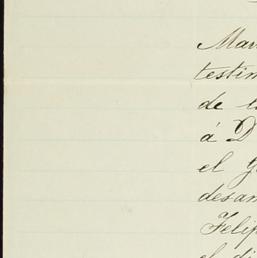 Man
testim
de l
á D
el G
desam
Felip
el di